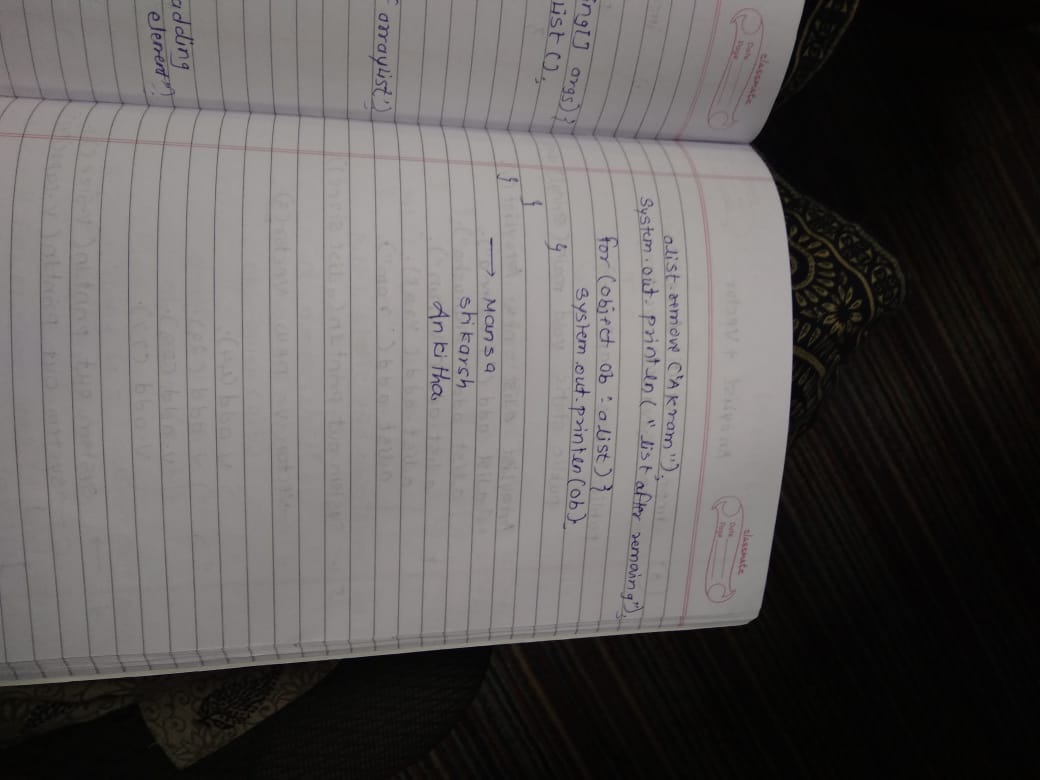 classmate
Date
Page
ing[] args){
List();
f arraylist')
adding
element")
classmate
Date
Page
alist.remove("Akram");
System.out.printen("list after remaing");
for(object ob : alist){
System.out.printen(ob);
}
}
}
→ Mansa
shikarsh
Ankitha